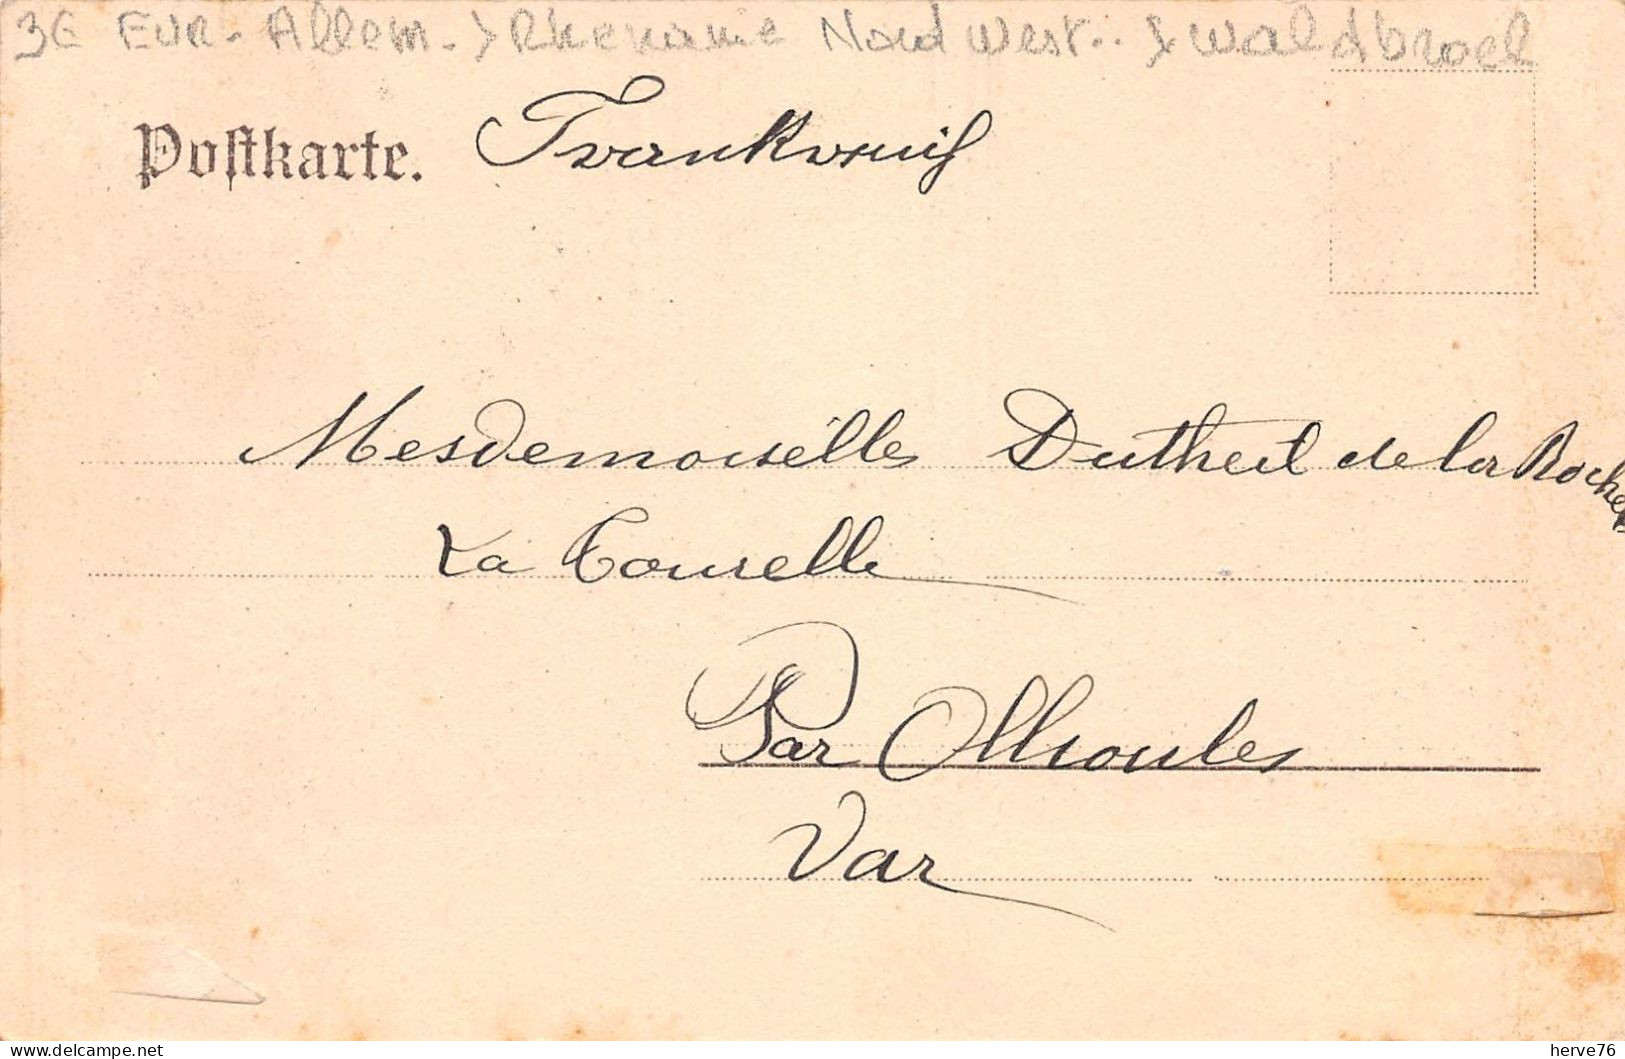 3€ EUR - Allem. > Rhenanie Nord West.. > Waldbroel
Postkarte. Frankreich
Mesdemoiselles Dutheil de la Roche
La Tourelle
Par Ollioules
Var
herve76